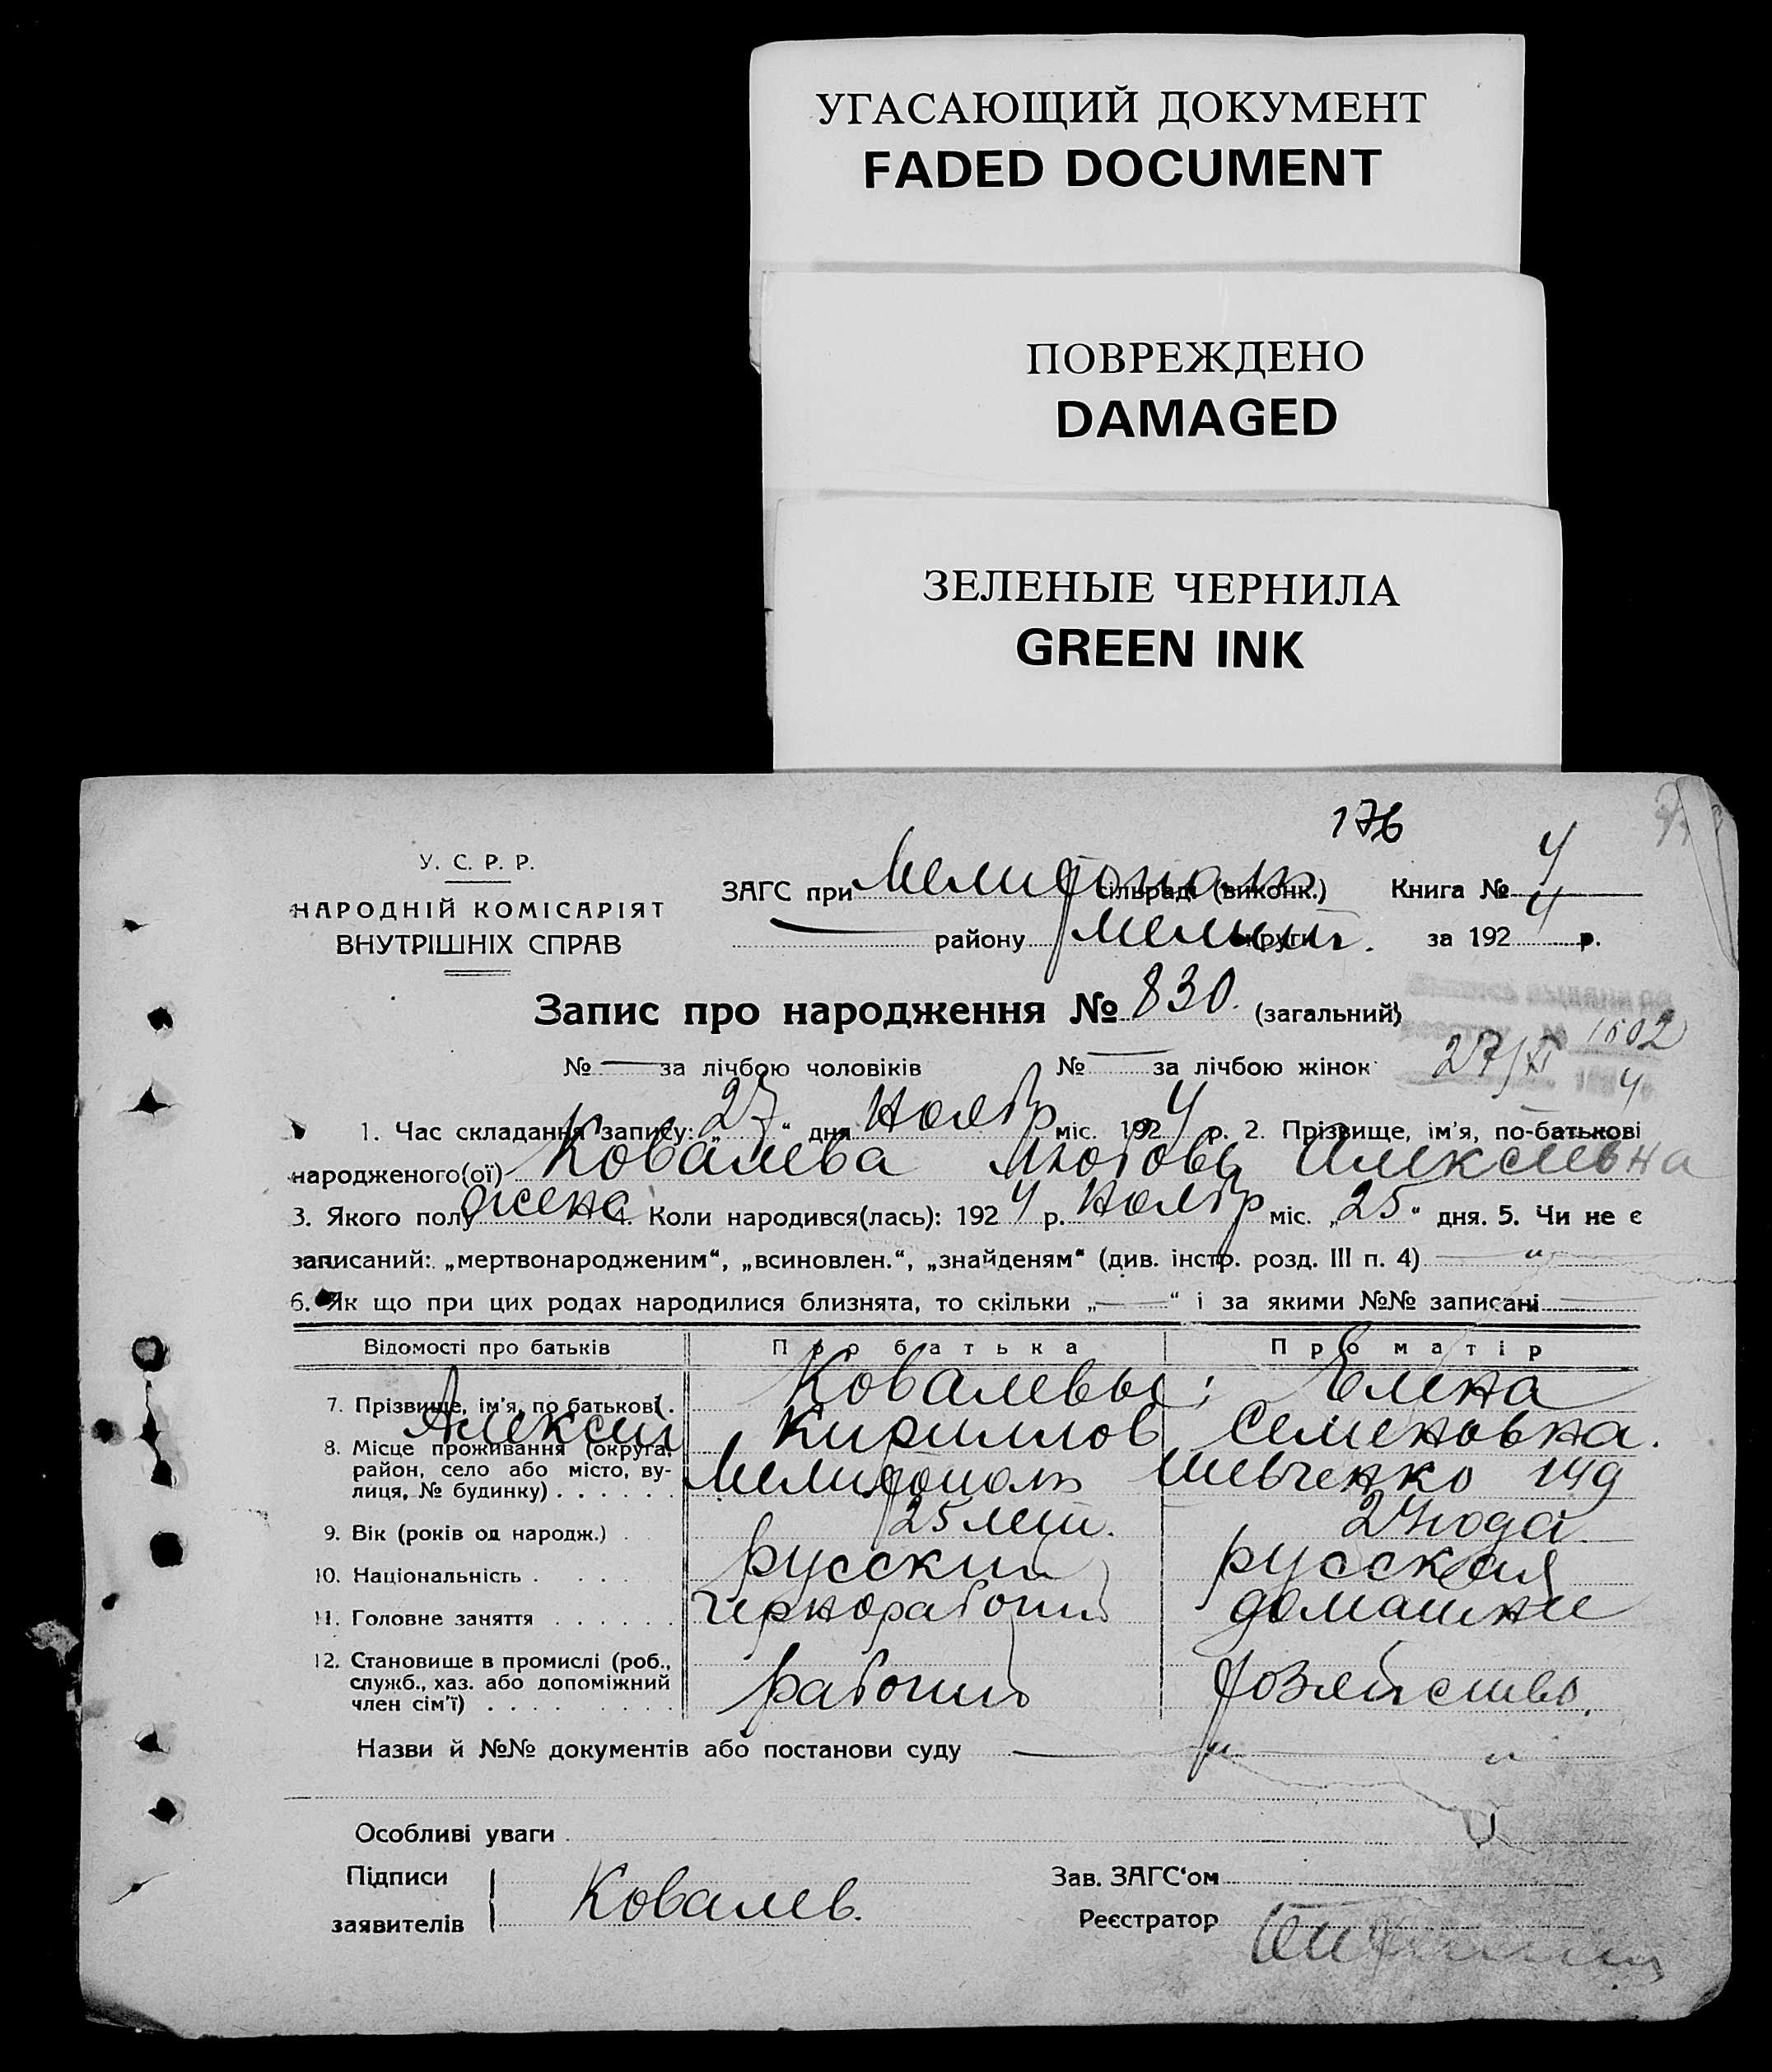 УГАСАЮЩИЙ ДОКУМЕНТ
FADED DOCUMENT
ПОВРЕЖДЕНО
DAMAGED
ЗЕЛЕНЫЕ ЧЕРНИЛА
GREEN INK
176
У. С. Р. Р.
НАРОДНІЙ КОМІСАРІЯТ
ВНУТРІШНІХ СПРАВ
ЗАГС при Мелитополь сільраді (виконк.) Книга № 4
району округи за 1924 р.
Запис про народження № 830. (загальний)
№ — за лічбою чоловіків № — за лічбою жінок
27/XI 4
1. Час складання запису: „27“ дня Ноябр міс. 1924 р. 2. Прізвище, ім'я, по-батькові
народженого(ої) Ковалева Любовь Алексеевна
3. Якого полу жена 4. Коли народився(лась): 1924 р. Ноябр міс. „25“ дня. 5. Чи не є
записаний: „мертвонародженим“, „всиновлен.“, „знайденям“ (див. інстр. розд. III п. 4) — „
6. Як що при цих родах народилися близнята, то скільки „—“ і за якими №№ записані —
Відомості про батьків Про батька Про матір
7. Прізвище, ім'я, по батькові. Ковалевы; Елена
Алексей Кириллов Семеновна.
8. Місце проживання (округа, район, село або місто, вулиця, № будинку) . . . . . . Мелитополь Шевченко 149
9. Вік (років од народж.) . 25 лет. 24 года
10. Національність . . . . русский русская
11. Головне заняття . . . . . . чернорабочий домашнее
12. Становище в промислі (роб., служб., хаз. або допоміжний член сім'ї) . . . . . . . . рабочий хозяйство.
Назви й №№ документів або постанови суду — „ „
Особливі уваги
Підписи
заявителів Ковалев.
Зав. ЗАГС'ом
Реєстратор